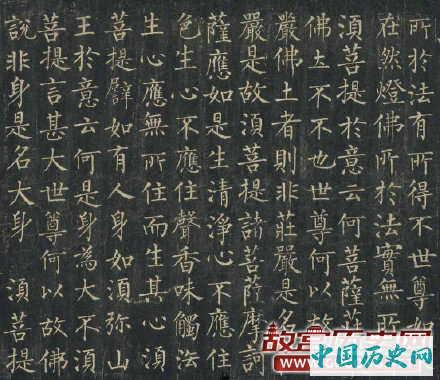 所於法有所得不世尊如
在然燈佛所於法實無所
須菩提於意云何菩薩
佛土不不也世尊何以故
嚴佛土者則非莊嚴是名
嚴是故須菩提諸菩薩摩訶
薩應如是生清淨心不應住
色生心不應住聲香味觸法
生心應無所住而生其心須
菩提譬如有人身如須弥山
王於意云何是身為大不須
菩提言甚大世尊何以故佛
說非身是名大身 須菩提
中国历史网